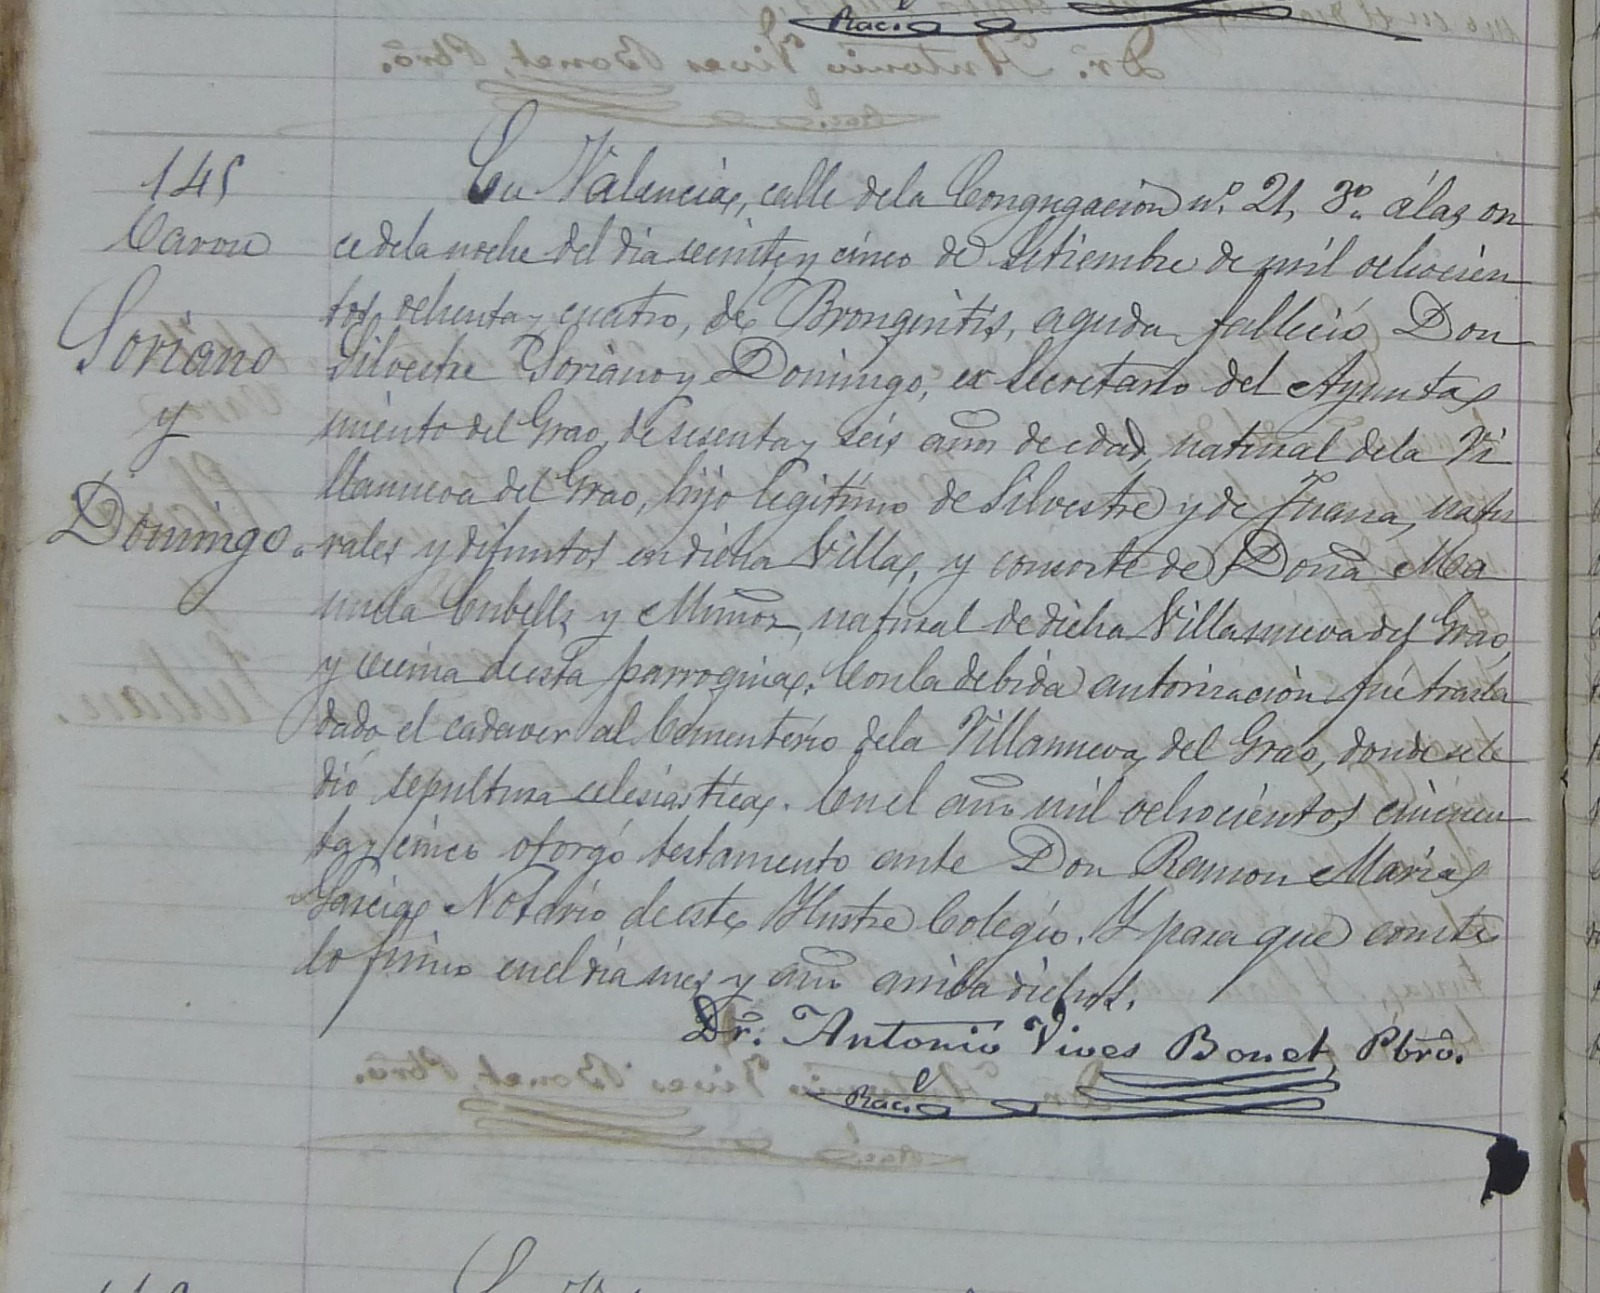 Raci.
Dr. Antonio Vives Bonet, Pbrô.
145
Varon
Soriano
y
Domingo.
En Valencia, calle dela Congregacion nº. 21, 3º. álas on
ce dela noche del dia veinte y cinco de Setiembre de mil ochocien
tos ochenta y cuatro, de Bronginitis, aguda falleció Don
Silvestre Soriano y Domingo, ex Secretario del Ayunta
miento del Grao, de sesenta y seis años de edad, natural dela Vi
llanueva del Grao, hijo legítimo de Silvestre y de Juana, natu
rales y difuntos en dicha Villa, y consorte de Doña Ma
nuela Cubells y Muñoz, natural de dicha Villanueva del Grao,
y vecina de esta parroquia. Con la debida autorizacion fué trasla
dado el cadaver al Cementerio dela Villanueva del Grao, donde se le
dió sepultura eclesiastica. En el año mil ochocientos cincuen
ta y cinco otorgó testamento ante Don Ramon Maria
Garcia Notario de este Ilustre Colegio. Y para que conste
lo firmo en el dia mes y año arriba dichos.
Dr. Antonio Vives Bonet, Pbrô.
Raci.